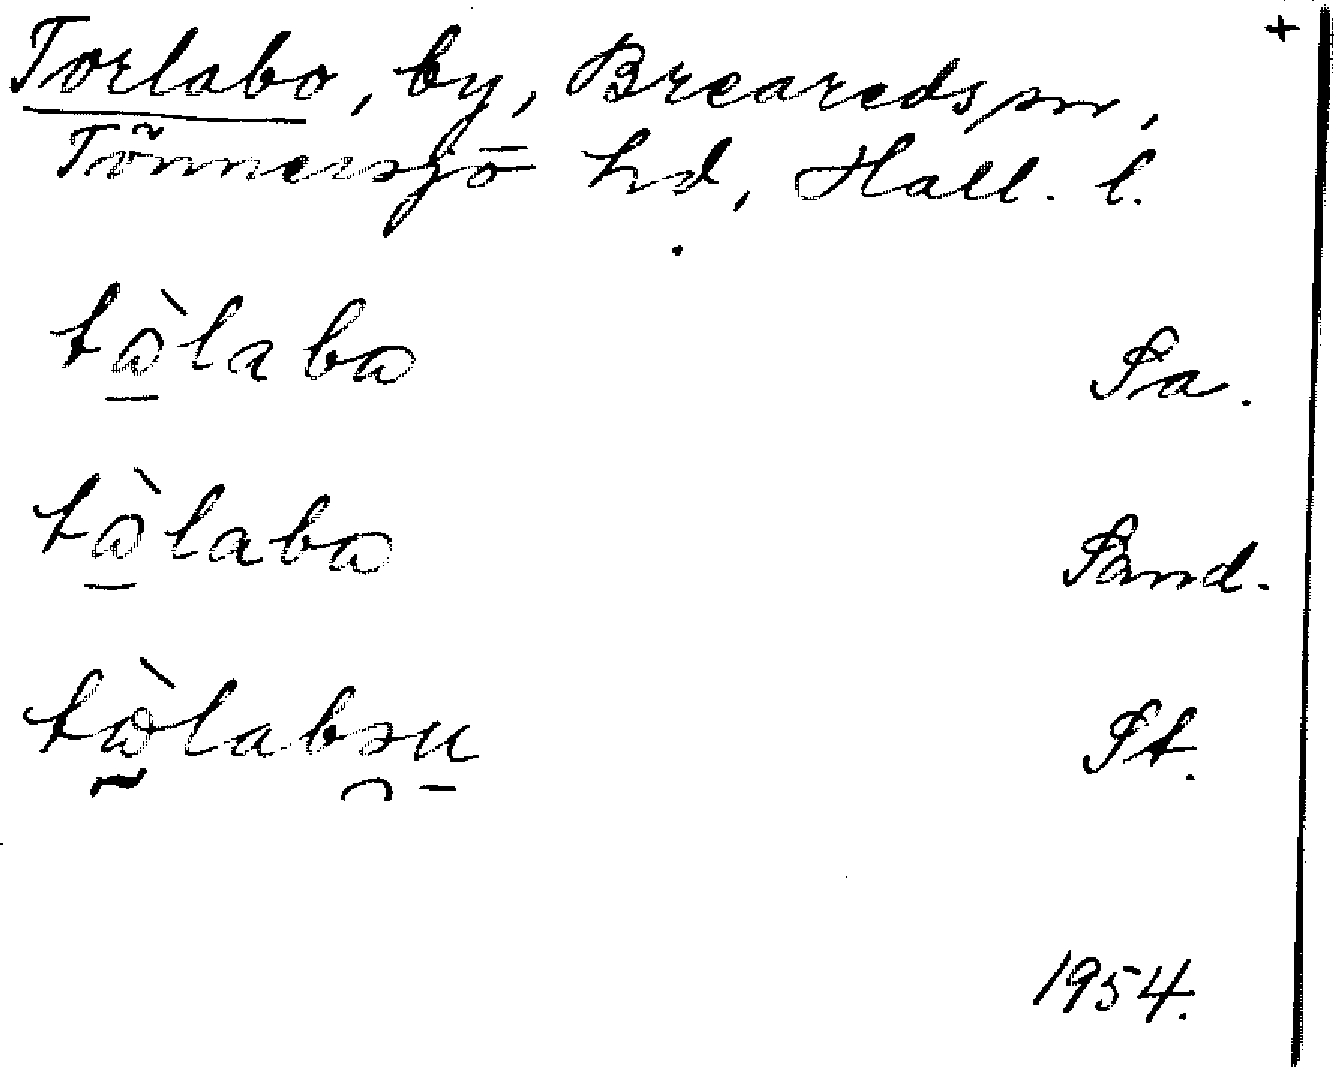 +
Torlabo, by, Breareds sn,
Tönnersjö hd, Hall. l.
tòlabo
Sa.
tòlabo
Sand.
tòlabɔu
St.
1954.